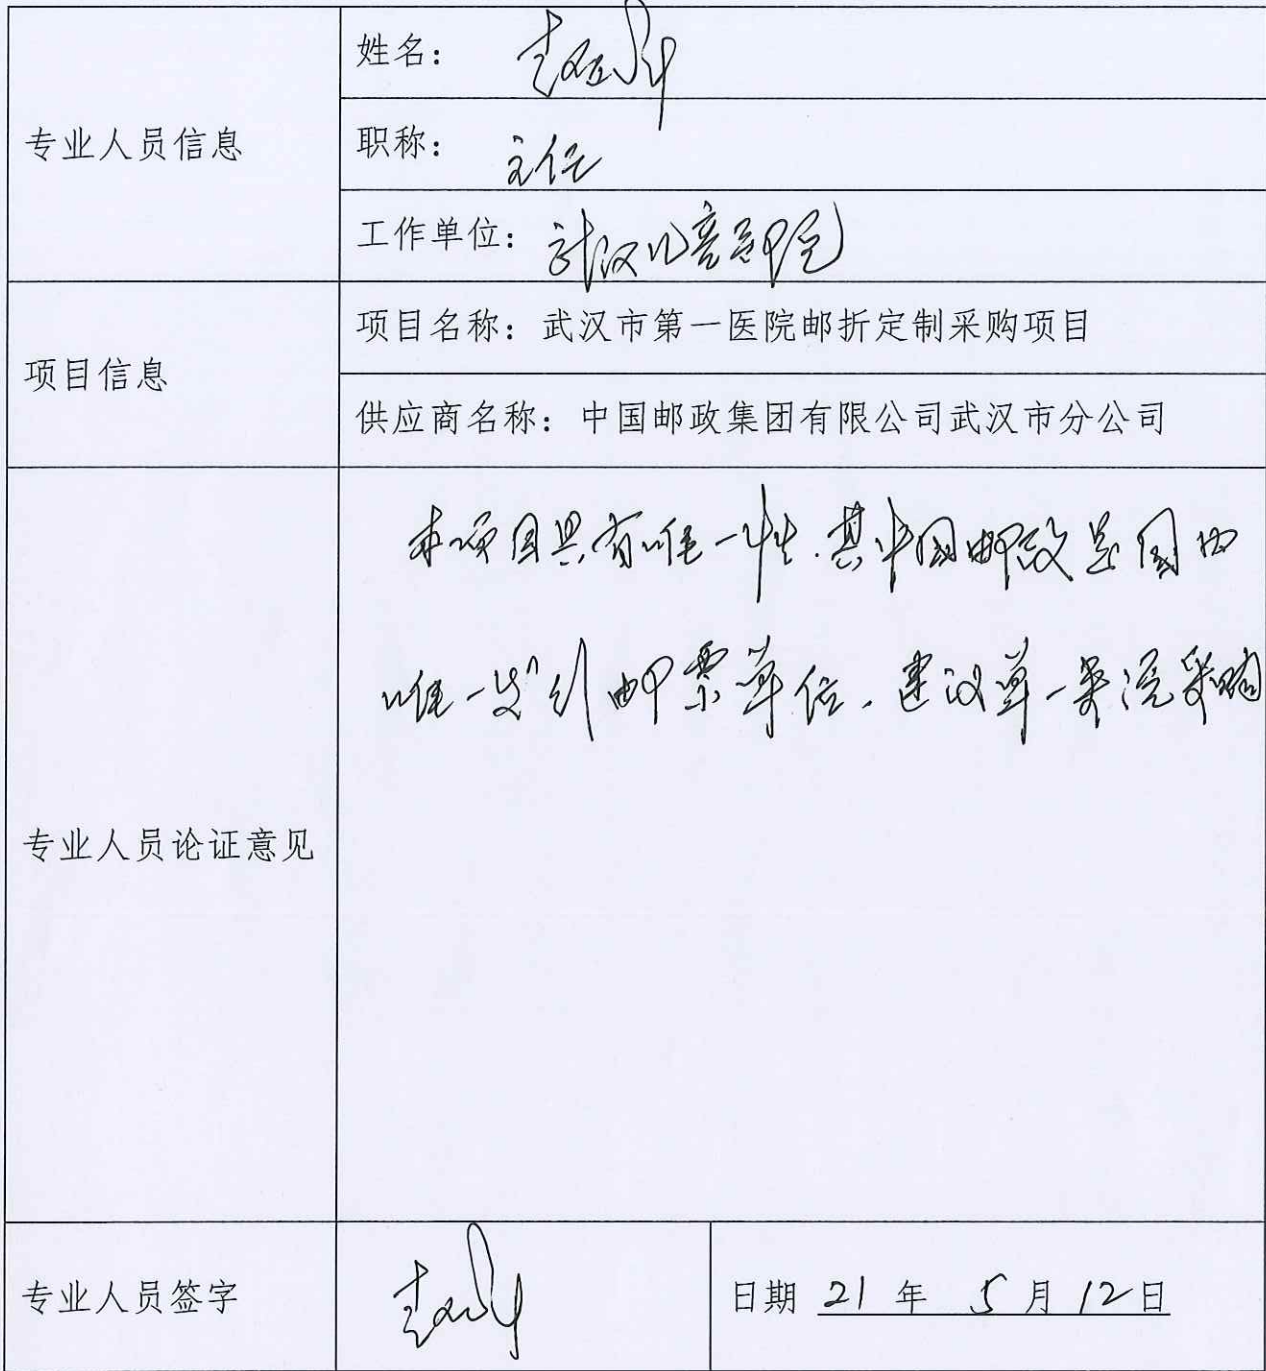 专业人员信息
姓名：
职称：主任
工作单位：武汉儿童医院
项目信息
项目名称：武汉市第一医院邮折定制采购项目
供应商名称：中国邮政集团有限公司武汉市分公司
专业人员论证意见
本项目具有唯一性.其中国邮政是国内
唯一发行邮票单位.建议单一来源采购
专业人员签字
日期 21 年 5 月 12 日